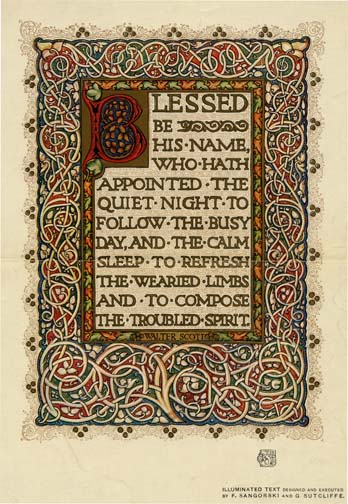 BLESSED
BE
HIS·NAME,
WHO·HATH
APPOINTED·THE
QUIET·NIGHT·TO
FOLLOW·THE·BUSY
DAY, AND·THE·CALM
SLEEP·TO·REFRESH
THE·WEARIED·LIMBS
AND·TO·COMPOSE
THE·TROUBLED·SPIRIT.
WALTER·SCOTT
ILLUMINATED TEXT DESIGNED AND EXECUTED
BY F. SANGORSKI AND G. SUTCLIFFE.